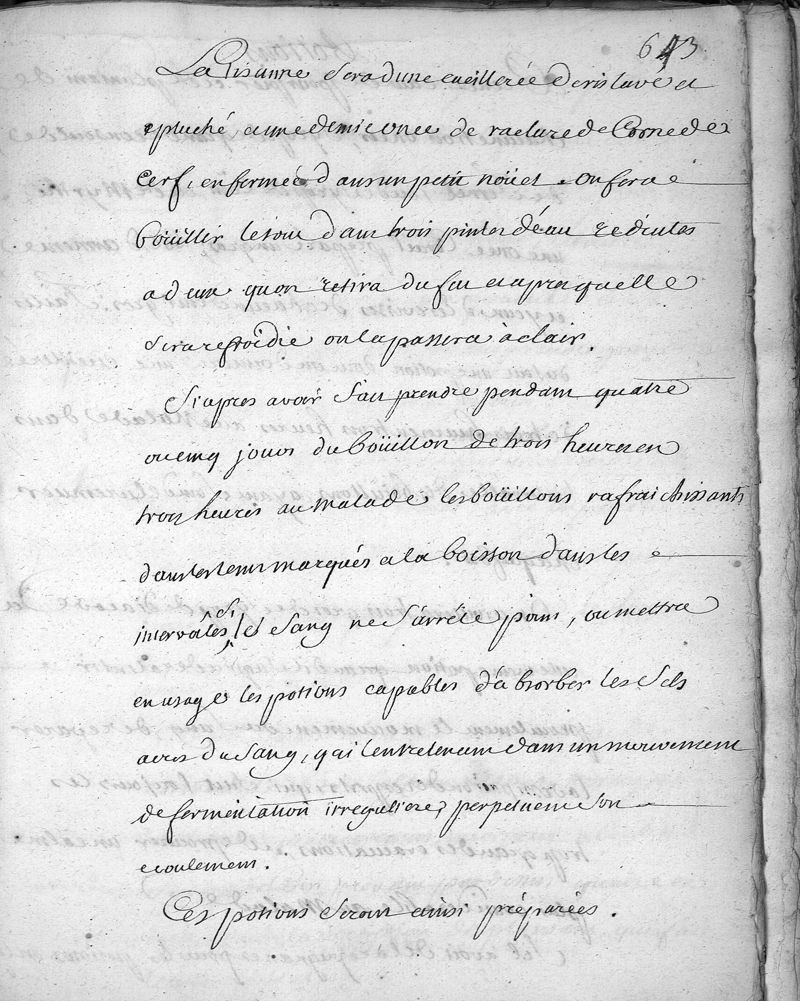 643
La Tisanne sera d'une cueillerée de ris lavé et
epluché, a une demie once de raclure de Corne de
Cerf, enfermée dans un petit noüet. on fera
boüillir le tout dans trois pintes d'eau reduites
a deux quon retira du feu et apres quelle
sera refroidie on la passera à clair.
Si apres avoir fait prendre pendant quatre
ou cinq jours du boüillon de trois heures en
trois heures au malade les boüillons rafraichissants
dans les tems marqués et la boisson dans les
intervales, si le sang ne s'arrête point, on mettra
en usage les potions capables d'absorber les sels
acres du sang, qui l'entretenant dans un mouvement
de fermentation irreguliere, perpetuent son
ecoulement.
Ces potions seront ainsi préparées.